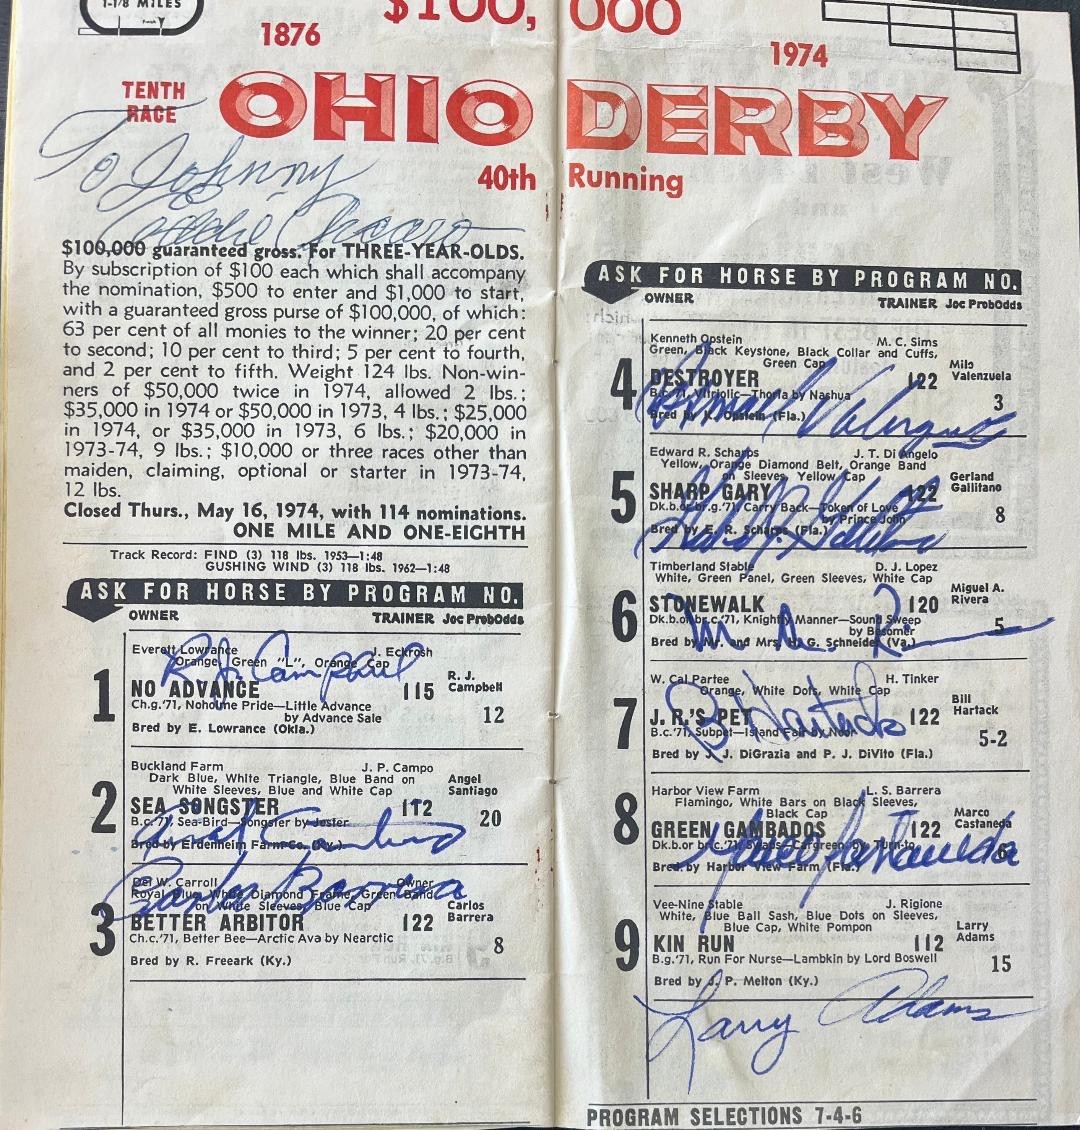 1-1/8 MILES
$100,000
1876
1974
TENTH
RACE
OHIO DERBY
40th Running
To Johnny
Eddie Arcaro
$100,000 guaranteed gross. For THREE-YEAR-OLDS.
By subscription of $100 each which shall accompany
the nomination, $500 to enter and $1,000 to start,
with a guaranteed gross purse of $100,000, of which:
63 per cent of all monies to the winner; 20 per cent
to second; 10 per cent to third; 5 per cent to fourth,
and 2 per cent to fifth. Weight 124 lbs. Non-win-
ners of $50,000 twice in 1974, allowed 2 lbs.;
$35,000 in 1974 or $50,000 in 1973, 4 lbs.; $25,000
in 1974, or $35,000 in 1973, 6 lbs.; $20,000 in
1973-74, 9 lbs.; $10,000 or three races other than
maiden, claiming, optional or starter in 1973-74,
12 lbs.
Closed Thurs., May 16, 1974, with 114 nominations.
ONE MILE AND ONE-EIGHTH
Track Record: FIND (3) 118 lbs. 1953—1:48
GUSHING WIND (3) 118 lbs. 1962—1:48
ASK FOR HORSE BY PROGRAM NO.
OWNER TRAINER Joc ProbOdds
Everett Lowrance J. Eckrosh
Orange, Green "L", Orange Cap
R. J. Campbell
1 NO ADVANCE 115 R. J. Campbell
Ch.g.'71, Nohome Pride—Little Advance 12
by Advance Sale
Bred by E. Lowrance (Okla.)
Buckland Farm J. P. Campo
Dark Blue, White Triangle, Blue Band on
White Sleeves, Blue and White Cap
2 SEA SONGSTER 112 Angel Santiago
B.c.'71, Sea-Bird—Songster by Jester 20
Bred by Erdenheim Farm Co. (Ky.)
Angel Santiago
Carlos Barrera
Del W. Carroll Owner
Royal Blue, White Diamond Frame, Green Band
on White Sleeves, Blue Cap
3 BETTER ARBITOR 122 Carlos Barrera
Ch.c.'71, Better Bee—Arctic Ava by Nearctic 8
Bred by R. Freeark (Ky.)
ASK FOR HORSE BY PROGRAM NO.
OWNER TRAINER Joc ProbOdds
Kenneth Opstein M. C. Sims
Green, Black Keystone, Black Collar and Cuffs,
Green Cap
4 DESTROYER 122 Milo Valenzuela
B.c.'71, Vitriolic—Thorla by Nashua 3
Bred by K. Opstein (Fla.)
Edward R. Scharps J. T. Di Angelo
Yellow, Orange Diamond Belt, Orange Band
on Sleeves, Yellow Cap
5 SHARP GARY 122 Gerland Gallitano
Dk.b.or br.g.'71, Carry Back—Token of Love 8
by Prince John
Bred by E. R. Scharps (Fla.)
Timberland Stable D. J. Lopez
White, Green Panel, Green Sleeves, White Cap
6 STONEWALK 120 Miguel A. Rivera
Dk.b.or br.c.'71, Knightly Manner—Sound Sweep 5
by Besomer
Bred by Mr. and Mrs. H. G. Schneider (Va.)
W. Cal Partee H. Tinker
Orange, White Dots, White Cap
7 J. R.'S PET 122 Bill Hartack
B Hartack
B.c.'71, Subpet—Island Fair by Noor 5-2
Bred by J. J. DiGrazia and P. J. DiVito (Fla.)
Harbor View Farm L. S. Barrera
Flamingo, White Bars on Black Sleeves,
Black Cap
8 GREEN GAMBADOS 122 Marco Castaneda
Dk.b.or br.c.'71, Swaps—Cargreen by Turn-to 6
Bred by Harbor View Farm (Fla.)
Marco Castaneda
Vee-Nine Stable J. Rigione
White, Blue Ball Sash, Blue Dots on Sleeves,
Blue Cap, White Pompon
9 KIN RUN 112 Larry Adams
B.g.'71, Run For Nurse—Lambkin by Lord Boswell 15
Bred by J. P. Melton (Ky.)
Larry Adams
PROGRAM SELECTIONS 7-4-6